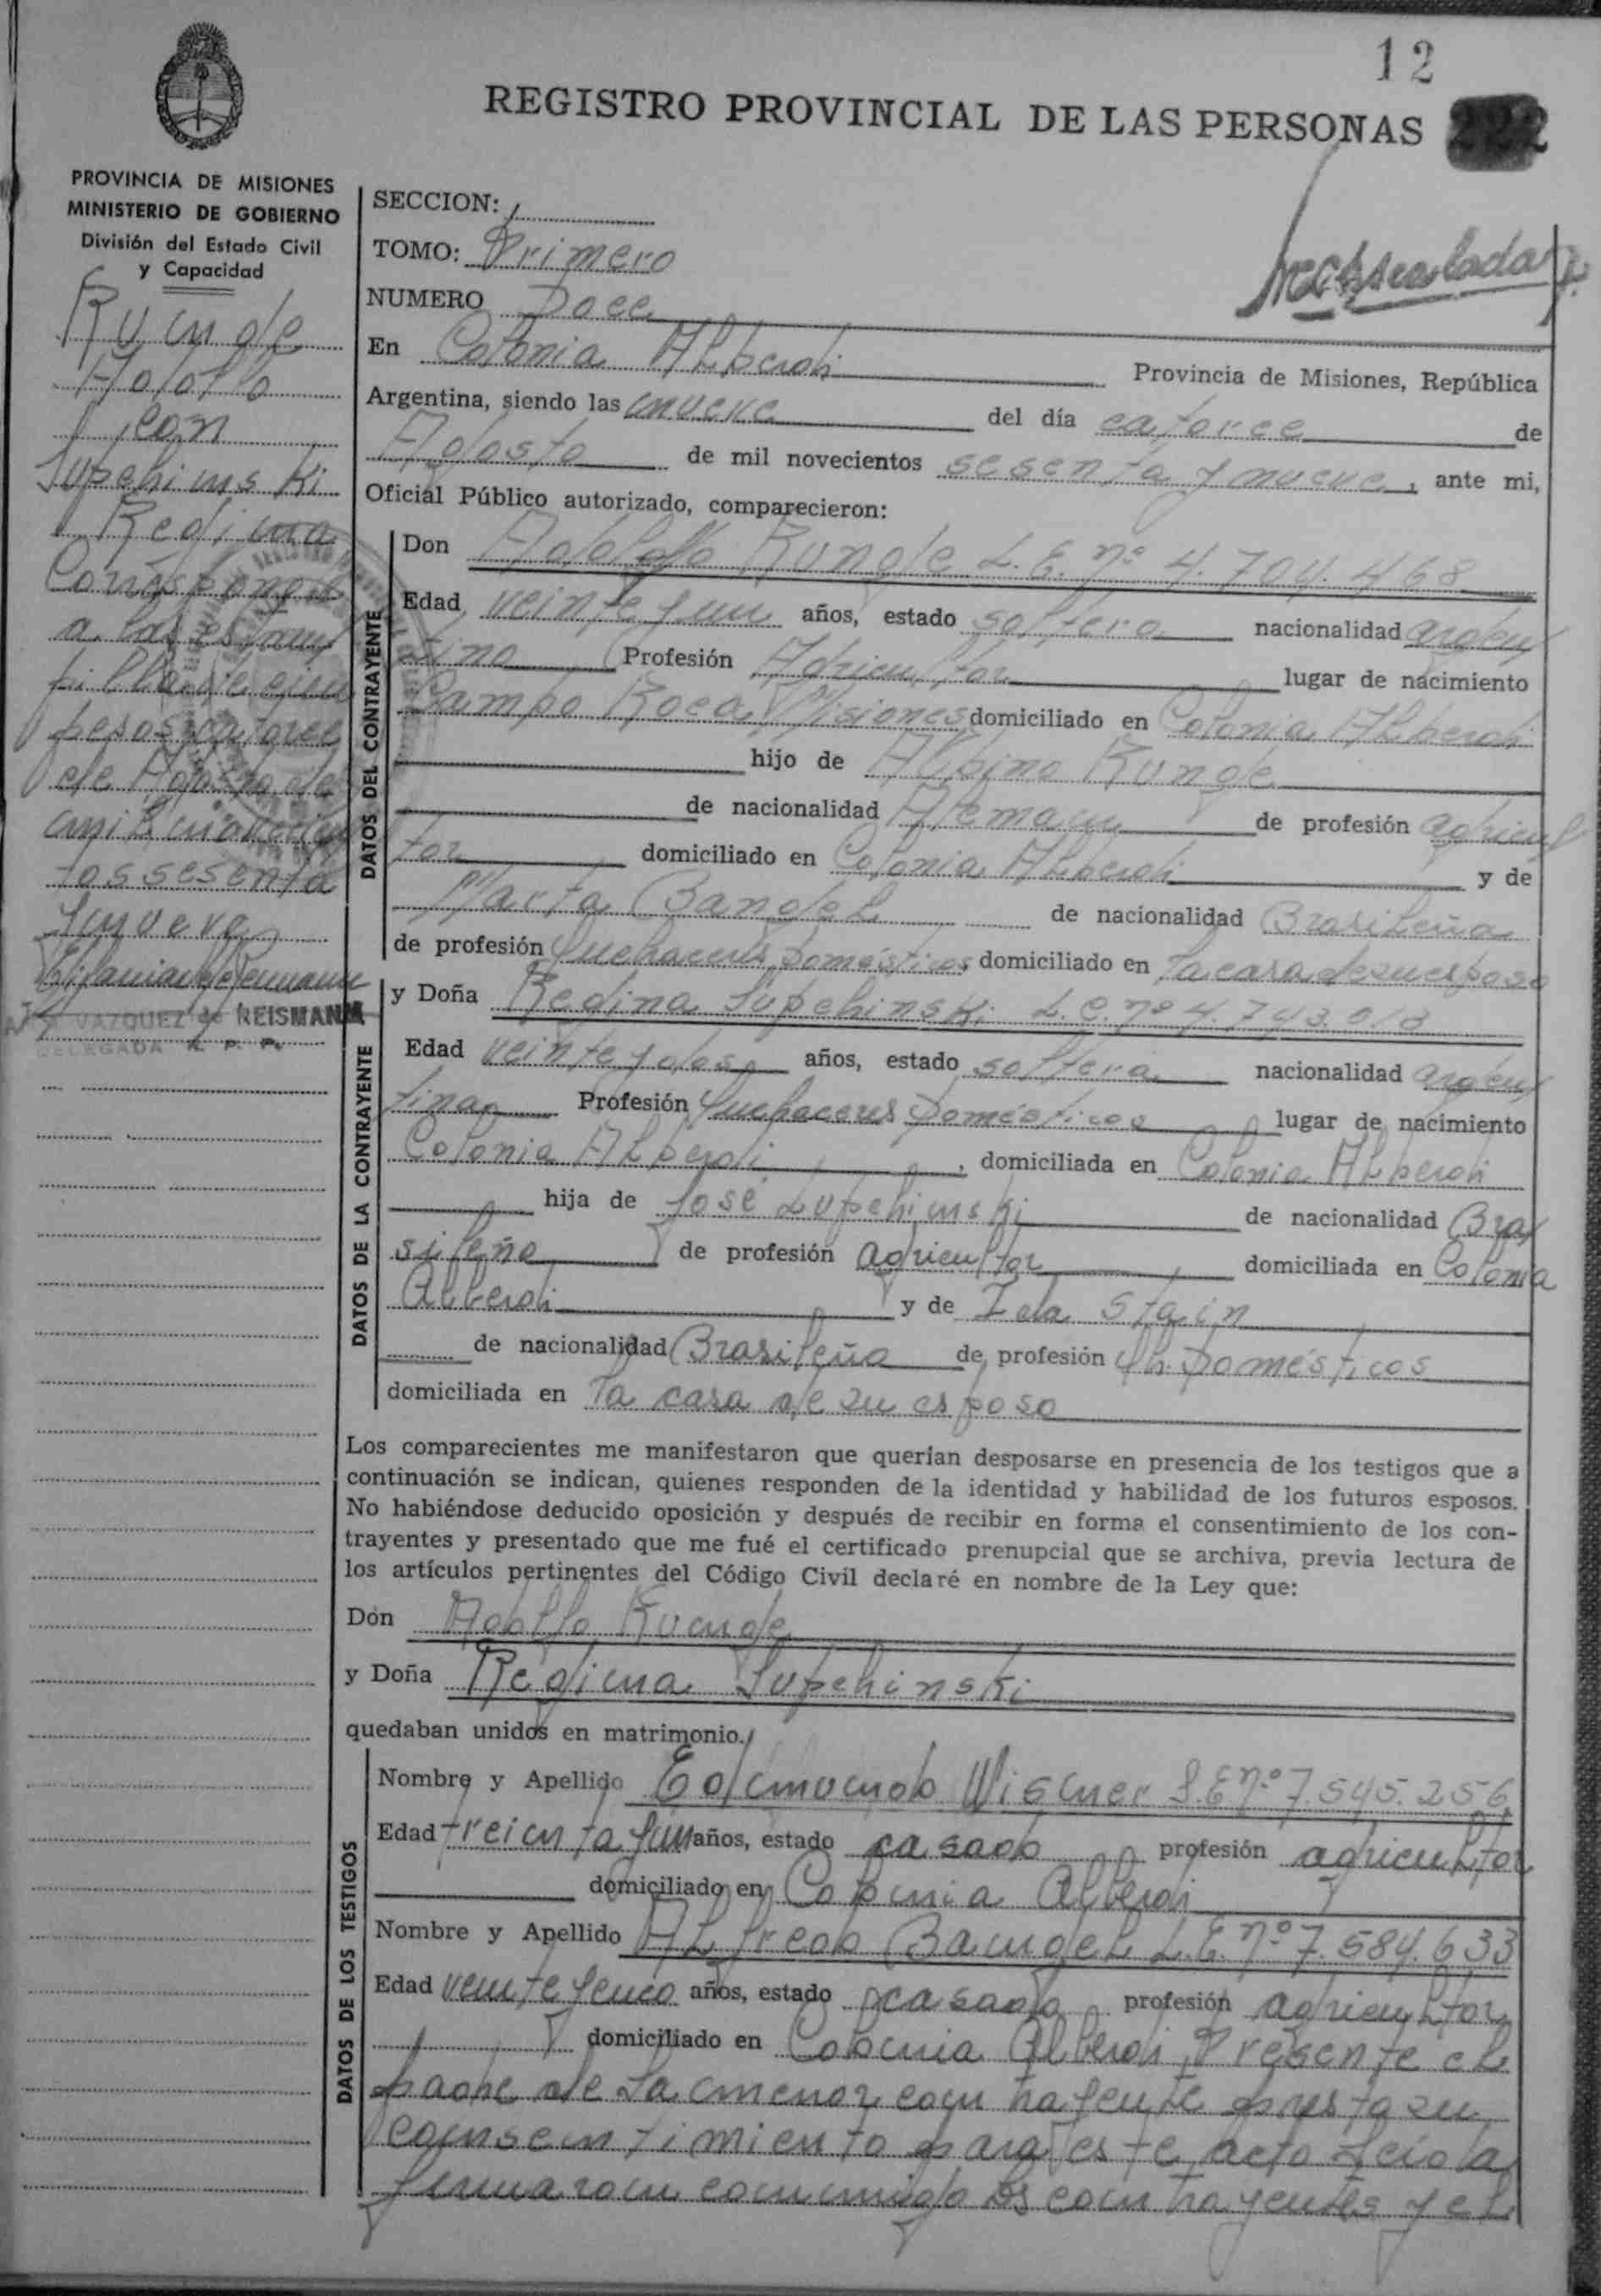 12
REGISTRO PROVINCIAL DE LAS PERSONAS 222
PROVINCIA DE MISIONES
MINISTERIO DE GOBIERNO
División del Estado Civil
y Capacidad
Runge
Adolfo
con
Lupchinski
Regina
Corresponde
a las estam
pilla de cien
pesos catorce
de Agosto de
mil novecien
tos sesenta
y nueve
VAZQUEZ de REISMANN
DELEGADA R. P. P.
SECCION:
TOMO: Primero
NUMERO Doce
En Colonia Alberdi Provincia de Misiones, República
Argentina, siendo las nueve del día catorce de
Agosto de mil novecientos sesenta y nueve, ante mi,
Oficial Público autorizado, comparecieron:
DATOS DEL CONTRAYENTE
Don Adolfo Runge L.E. nº 4.704.468
Edad veinte y un años, estado soltero nacionalidad argen
tino Profesión Agricultor lugar de nacimiento
Campo Roca Misiones domiciliado en Colonia Alberdi
hijo de Albino Runge
de nacionalidad Aleman de profesión agricul
tor domiciliado en Colonia Alberdi y de
Marta Bandel de nacionalidad Brasileña
de profesión Quehaceres Domésticos domiciliado en la casa de su esposo
DATOS DE LA CONTRAYENTE
y Doña Regina Lupchinski L.C. nº 4.743.013
Edad veinte y dos años, estado soltera nacionalidad argen
tina Profesión Quehaceres Domésticos lugar de nacimiento
Colonia Alberdi, domiciliada en Colonia Alberdi
hija de José Lupchinski de nacionalidad Bra
sileño de profesión agricultor domiciliada en Colonia
Alberdi y de Ida Stain
de nacionalidad Brasileña de profesión Qh. Domésticos
domiciliada en la casa de su esposo
Los comparecientes me manifestaron que querían desposarse en presencia de los testigos que a
continuación se indican, quienes responden de la identidad y habilidad de los futuros esposos.
No habiéndose deducido oposición y después de recibir en forma el consentimiento de los con-
trayentes y presentado que me fué el certificado prenupcial que se archiva, previa lectura de
los artículos pertinentes del Código Civil declaré en nombre de la Ley que:
Don Adolfo Runge
y Doña Regina Lupchinski
quedaban unidos en matrimonio.
DATOS DE LOS TESTIGOS
Nombre y Apellido Edmundo Wisner L.E nº 7.545.256
Edad treinta y un años, estado casado profesión agricultor
domiciliado en Colonia Alberdi
Nombre y Apellido Alfredo Bandel L.E. nº 7.584.633
Edad veinte y cinco años, estado casado profesión agricultor
domiciliado en Colonia Alberdi Presente el
padre de la menor contrayente presta su
consentimiento para este acto Leida
firmaron conmigo los contrayentes y el